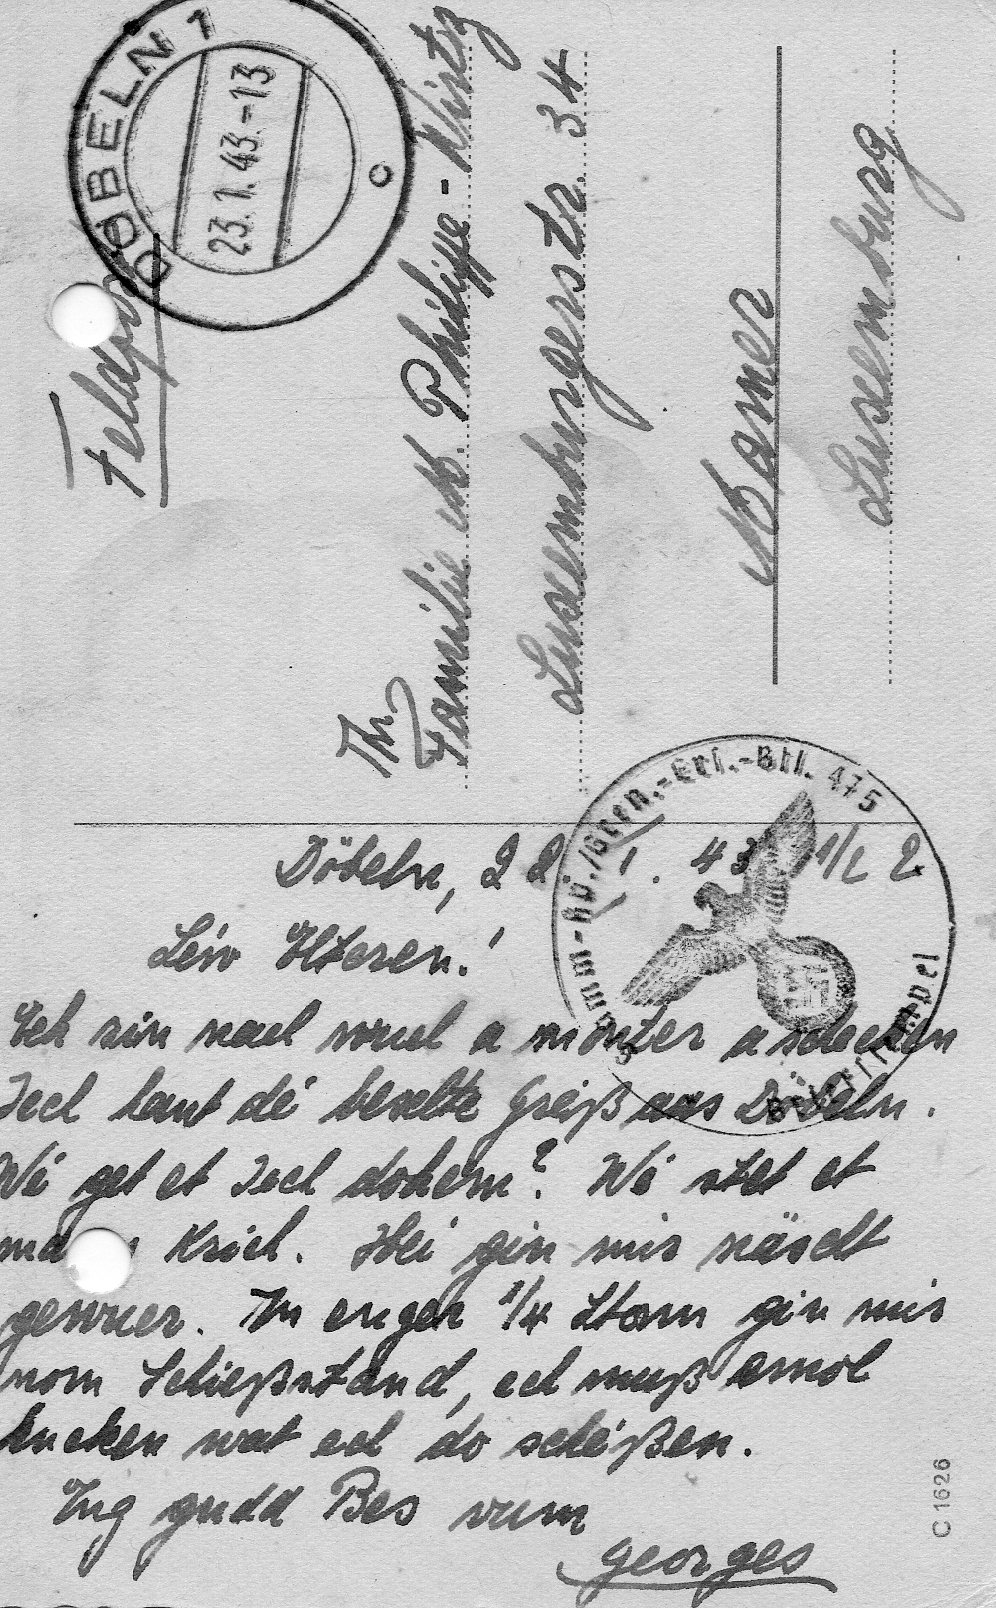 DÖBELN 1
23.1.43.-13
c
Feldpost
An
Familie M. Philippe-Wirtz
Luxemburgerstr. 34
Mamer
Luxemburg
Stamm-Kp./Gren.-Ers.-Btl. 475
Briefstempel
Döbeln, 22. 1. 43 1/2 2
Léiv Elteren!
Ech sin nach wuel a monter a schecken
Iech haut dé beschte Gréiß aus Döbeln.
Wé get et Iech dohem? Wé stet et
mam Krich. Hei gin mir näscht
gewuer. An enger 1/4 Ston gin mir
nom Schießstand, ech muß emol
kucken wat ech do schéißen.
Eng gudd Bes vum
Georges
C 1626